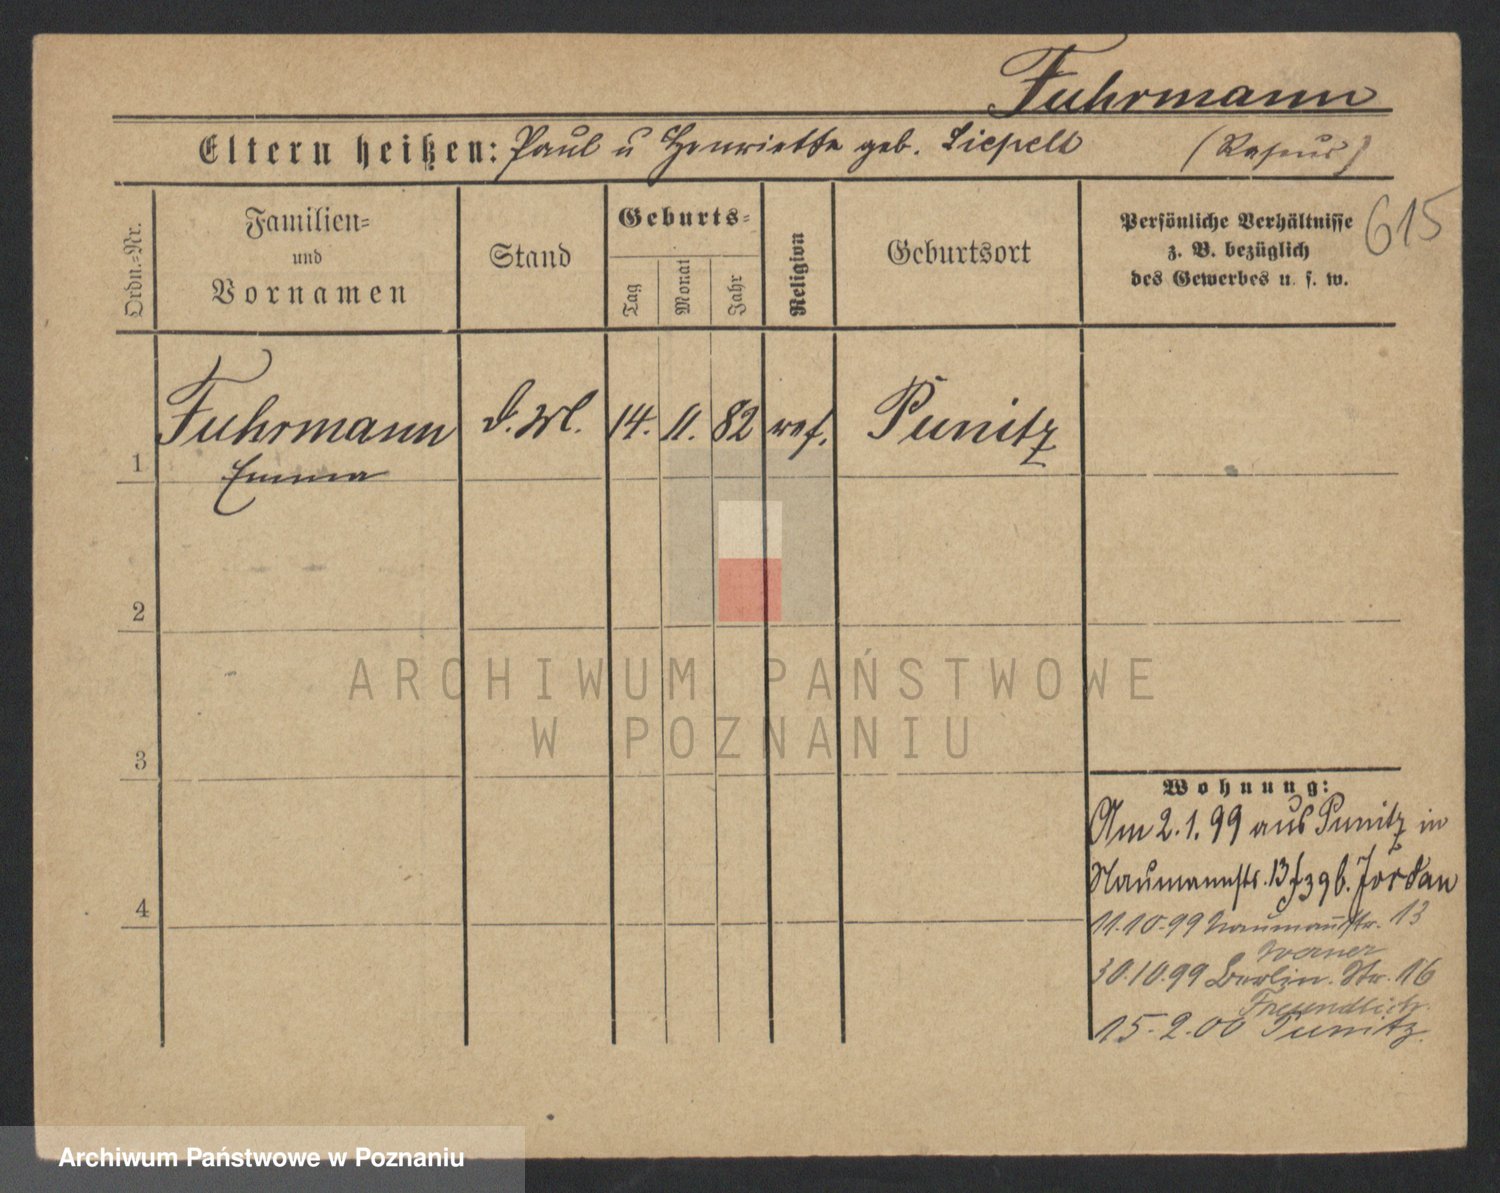 Fuhrmann
Eltern heißen: Paul u Henriette geb. Liepelt
615
Ordn.-Nr.
Familien- und Vornamen
Stand
Geburts-
Tag
Monat
Jahr
Religion
Geburtsort
Persönliche Verhältnisse
z. B. bezüglich
des Gewerbes u. s. w.
1
Fuhrmann
Emma
14. 11. 82 ref. Punitz
2
ARCHIWUM PAŃSTWOWE
W POZNANIU
3
Wohnung:
Am 2.1.99 aus Punitz in
Naumannstr. 13 b. Jordan
4
11.10.99 Naumannstr. 13
30.10.99 Berlin. Str. 16
Freundlich
15.2.00 Punitz.
Archiwum Państwowe w Poznaniu